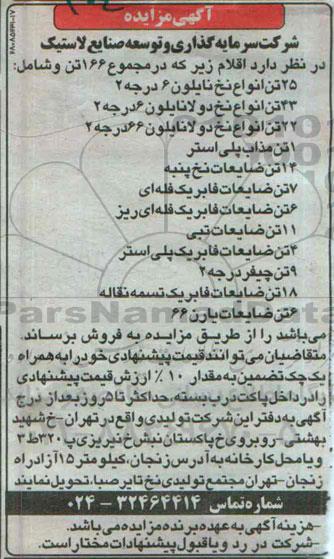 آگهی مزایده
شرکت سرمایه گذاری و توسعه صنایع لاستیک
در نظر دارد اقلام زیر که در مجموع ۱۶۶ تن و شامل:
۲۵ تن انواع نخ نایلون ۶ درجه ۲
۴۳ تن انواع نخ دولا نایلون ۶ درجه ۲
۲۲ تن انواع نخ دولا نایلون ۶۶ درجه ۲
۱ تن مذاب پلی استر
۱۴ تن ضایعات نخ پنبه
۷ تن ضایعات فابریک فله ای
۶ تن ضایعات فابریک فله ای ریز
۱۱ تن ضایعات تبی
۴ تن ضایعات فابریک پلی استر
۹ تن چیفر درجه ۲
۱۸ تن ضایعات فابریک تسمه نقاله
۶ تن ضایعات یارن ۶۶
می باشد را از طریق مزایده به فروش برساند.
متقاضیان می توانند قیمت پیشنهادی خود را به همراه
یک چک تضمین به مقدار ۱۰٪ ارزش قیمت پیشنهادی
را در داخل پاکت درب بسته، حداکثر تا ۵ روز بعد از درج
آگهی به دفتر این شرکت تولیدی واقع در تهران - خ شهید
بهشتی - روبروی خ پاکستان نبش خ نبریزی پ ۳۲۰ ط ۳
و یا محل کارخانه به آدرس زنجان، کیلومتر ۱۵ آزاد راه
زنجان - تهران مجتمع تولیدی نخ تایر صبا، تحویل نمایند
شماره تماس ۳۲۴۶۴۴۱۴ - ۰۲۴
-هزینه آگهی به عهده برنده مزایده می باشد.
-شرکت در رد و یا قبول پیشنهادات مختار است.